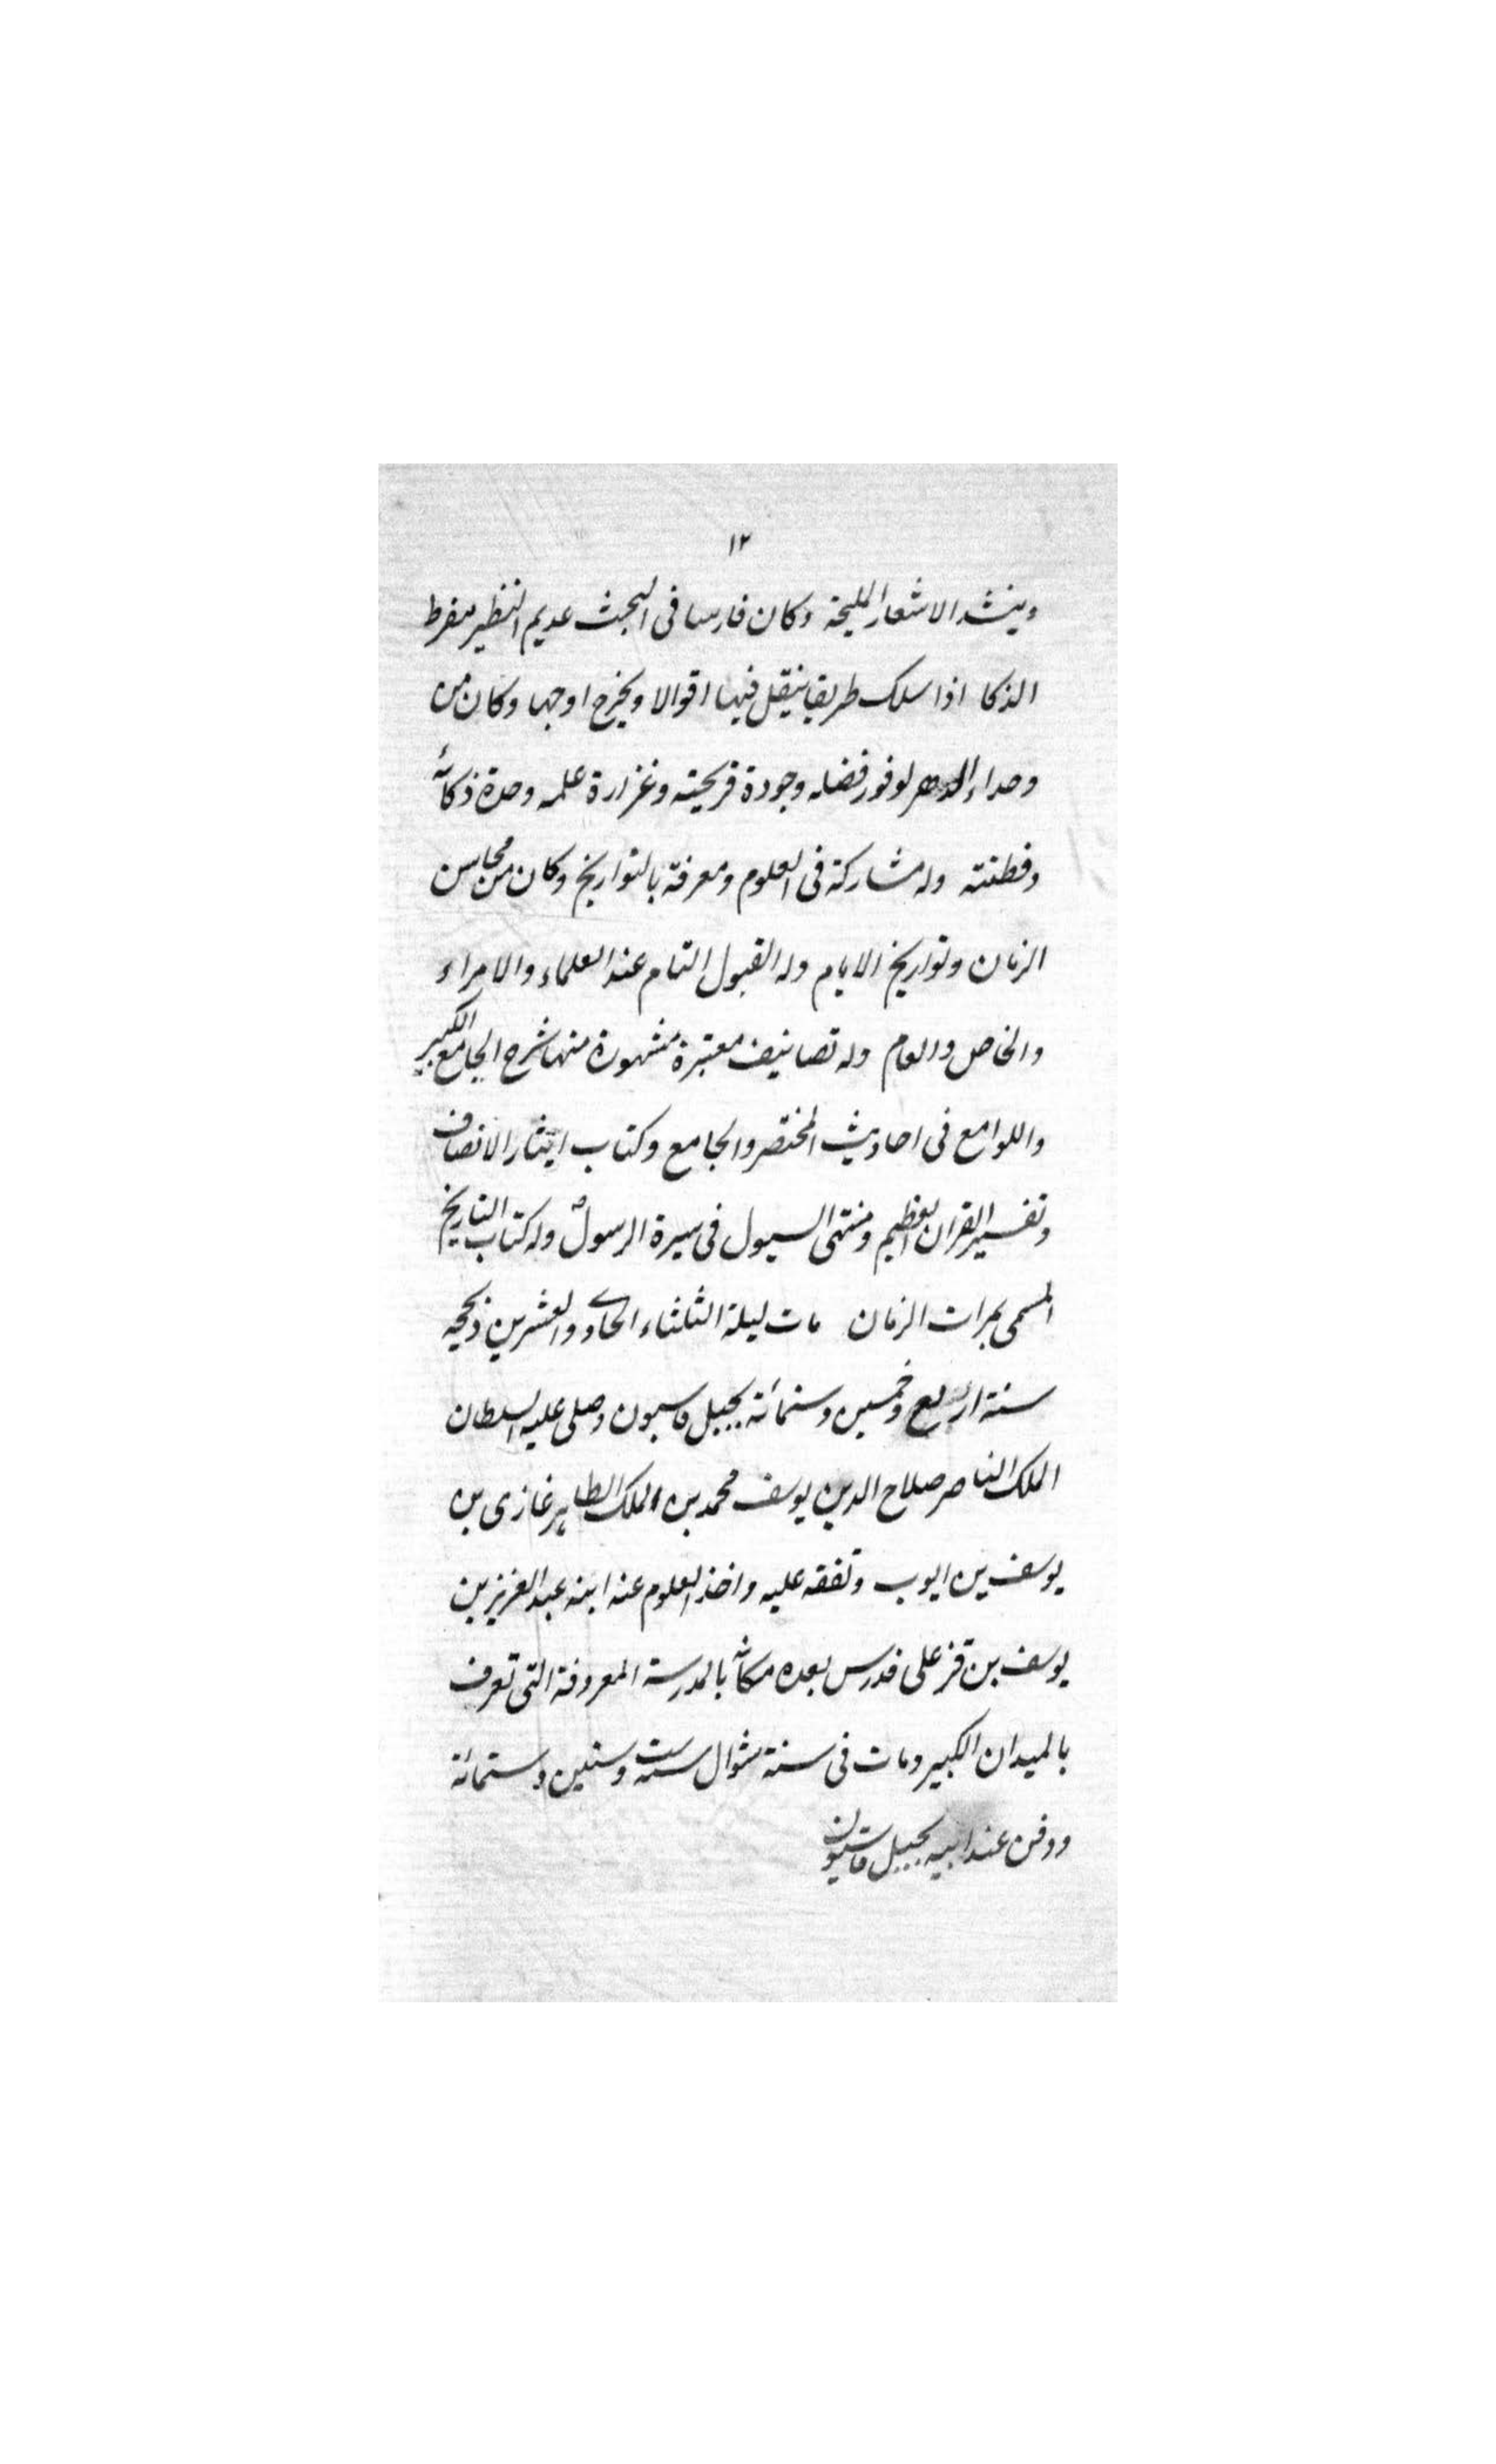 ١٢
وينشد الاشعار المليحة وكان فارسا فى البحث عديم النظير مفرط
الذكا اذا سلك طريقا ينقل فيها اقوالا ويخرج اوجها وكان من
وحداء الدهر لوفور فضله وجودة قريحته وغزارة علمه وحدة ذكائه
وفطنته وله مشاركة فى العلوم ومعرفة بالتواريخ وكان من محاسن
الزمان وتواريخ الايام وله القبول التام عند العلماء والامراء
والخاص والعام وله تصانيف معتبرة مشهورة منها شرح الجامع الكبير
واللوامع فى احاديث المختصر والجامع وكتاب ايثار الانصاف
وتفسير القران العظيم ومنتهى السيول فى سيرة الرسول وله كتاب التاريخ
المسمى بمرات الزمان مات ليلة الثلثاء الحادى والعشرين ذيحجه
سنة اربع وخمسين وستمائة بجبل قاسيون وصلى عليه السلطان
الملك الناصر صلاح الدين يوسف محمد بن الملك الظاهر غازى بن
يوسف بن ايوب وتفقه عليه واخذ العلوم عنه ابنه عبد العزيز بن
يوسف بن قزعلى فدرس بعده مكانه بالمدرسة المعروفة التى تعرف
بالميدان الكبير ومات فى سنة شوال سنة ست وستين وستمائة
ودفن عند ابيه بجبل قاسيون